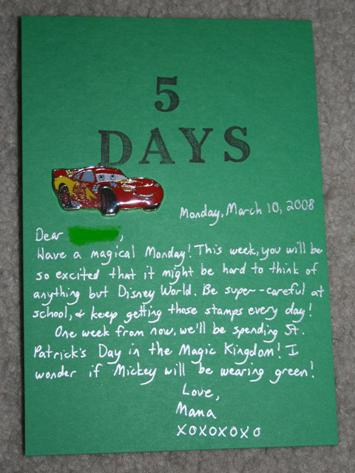 5
DAYS
Monday, March 10, 2008
Dear ,
Have a magical Monday! This week, you will be
so excited that it might be hard to think of
anything but Disney World. Be super--careful at
school, & keep getting those stamps every day!
One week from now, we'll be spending St.
Patrick's Day in the Magic Kingdom! I
wonder if Mickey will be wearing green!
Love,
Mama
XOXOXOXO